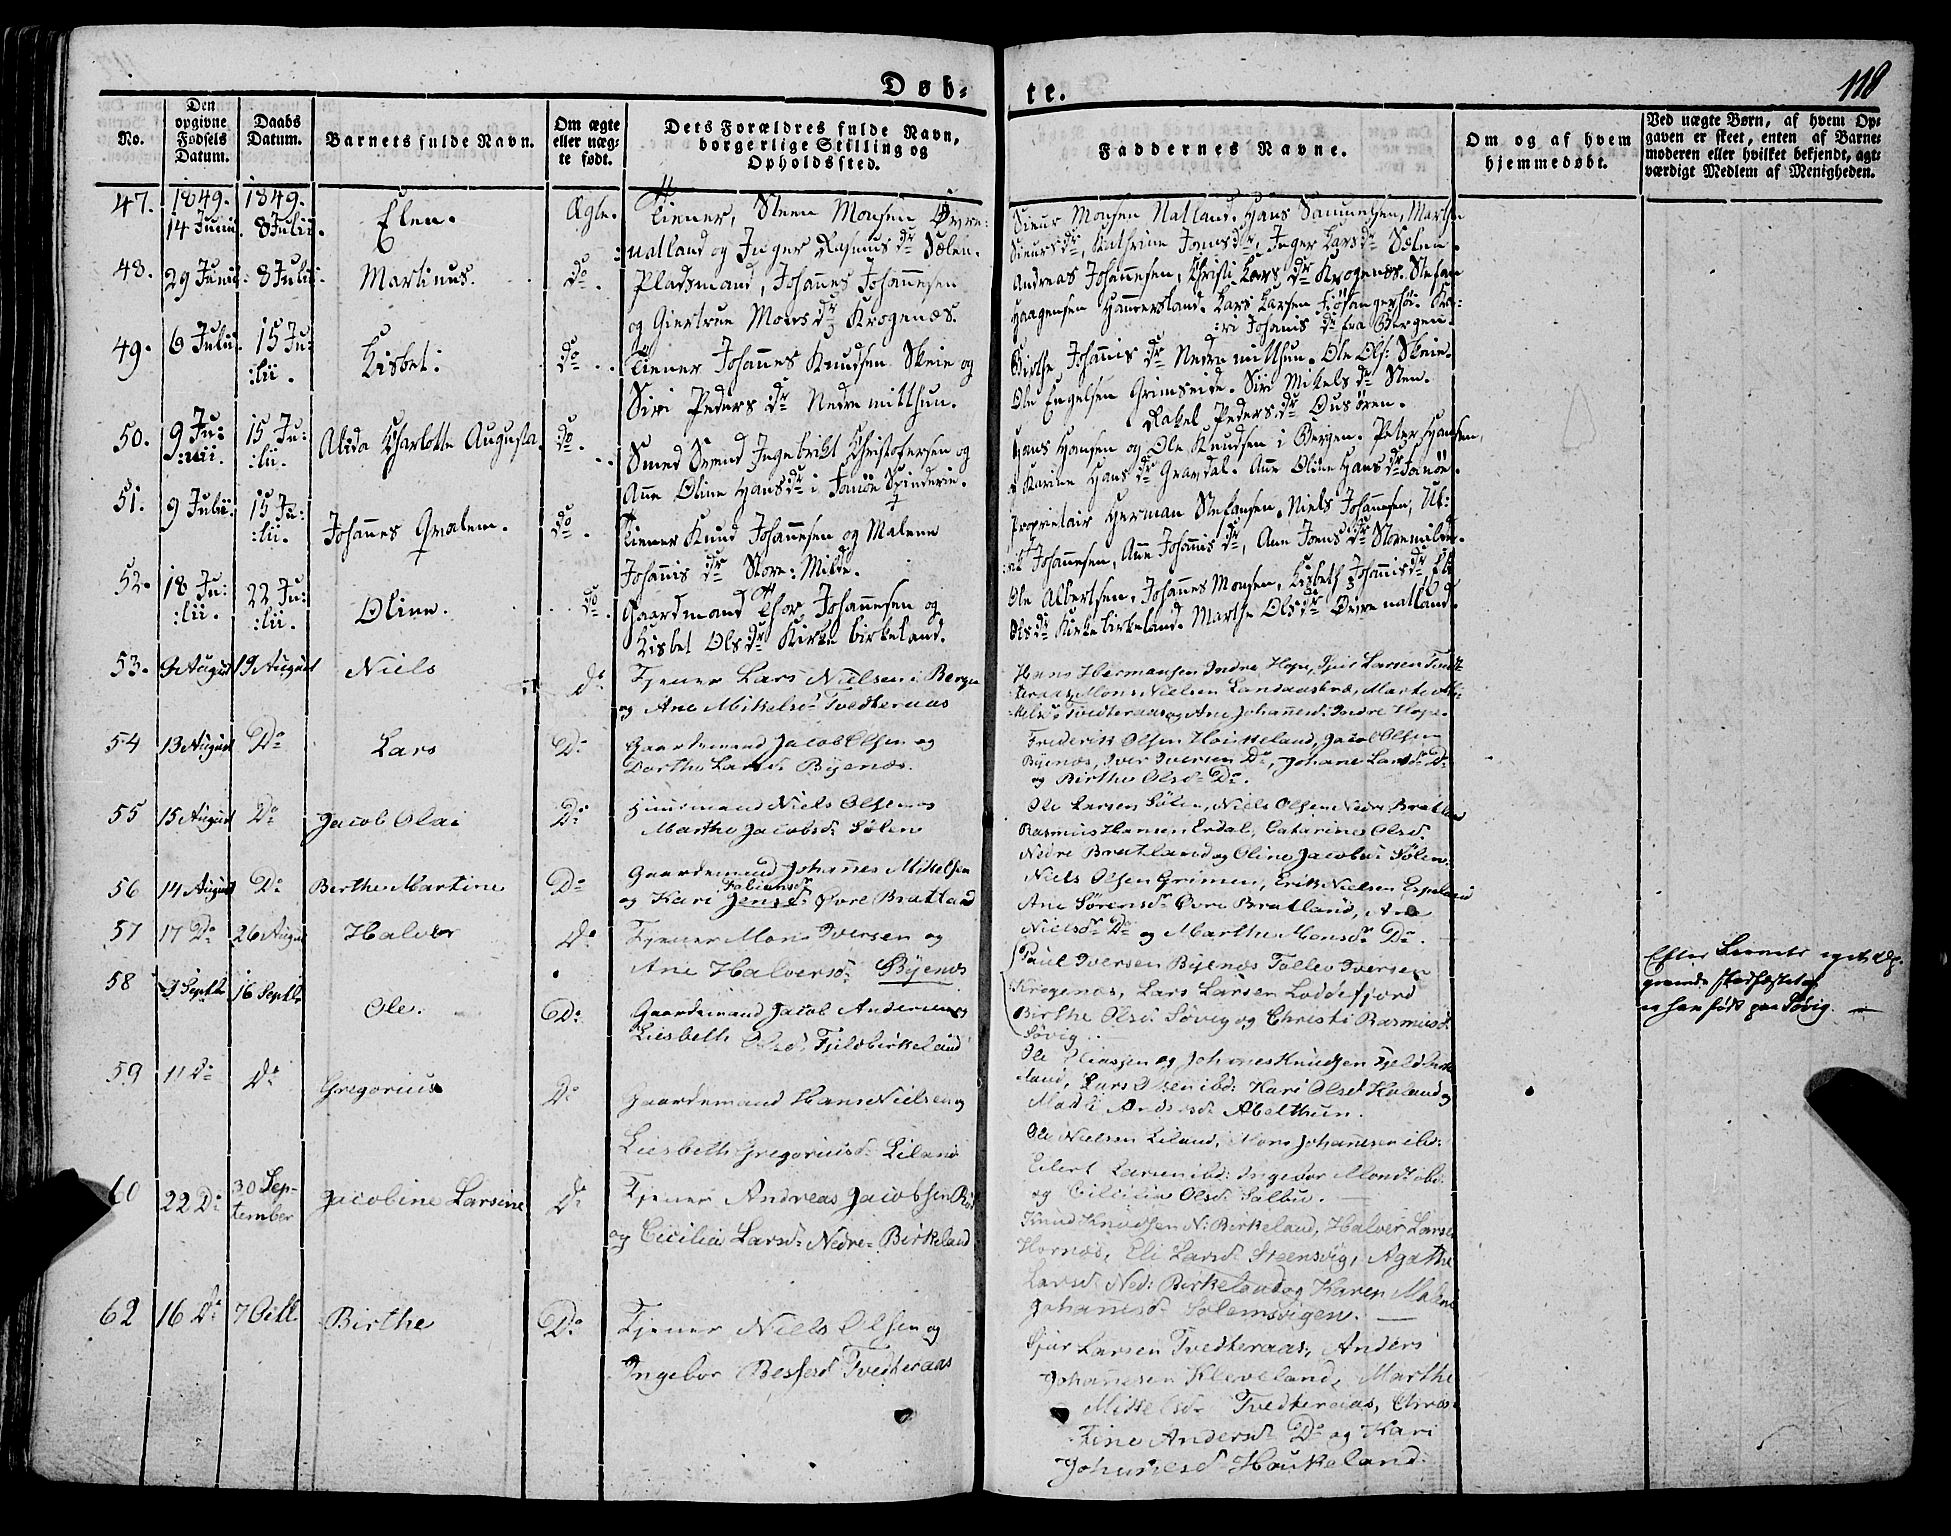 Døb-
te.
118
No.
Den opgivne Fødsels Datum.
Daabs Datum.
Barnets fulde Navn.
Om ægte eller uægte født.
Dets Forældres fulde Navn, borgerlige Stilling og Opholdssted.
Faddernes Navne.
Om og af hvem hjemmedøbt.
Ved uægte Børn, af hvem Opgaven er skeet, enten af Barnemoderen eller hvilket bekjendt, agtværdigt Medlem af Menigheden.
47. 1849. 14 Junii. 1849. 8 Julii. Elen. Ægte.
Tiener, Steen Monsen Øvre:
natland og Inger Rasmus dr Sælen.
Sieur Monsen Natland. Hans Samuelsen, Marthe
Sieurs dr, Kathrine Joens dr, Inger Lars dr Sælen.
48. 29 Junii. 8 Julii. Martinus. Do.
Pladsmand, Johanes Johanesen
og Giertrue Mons dr Krogenæs.
Andreas Johannesen, Christi Lars dr Krogenæs. Stefan
Haagensen Hammersland. Lars Larsen Fiøsangerhøi. Ka:
:ri Johanis dr fra Bergen.
49. 6 Julii. 15 Ju:
:lii. Lisbet: Do.
Tiener Johanes Knudsen Skeie og
Siri Peders dr Nedre mitthun.
Birthe Johannis dr Nedre mitthun. Ole Ols: Skeie.
Ole Engelsen Grimseide. Siri Mikels dr Sten.
Rakel Peders dr Ousøren.
50. 9 Ju:
:nii. 15 Ju:
:lii. Alida Charlotte Augusta. Do.
Smed Svend Ingebrikt Christofersen og
Ane Oline Hans dr i Janøe Spinderie.
Hans Hansen og Ole Knudsen i Bergen. Peter Hansen,
Karine Hans dr Gravdal. Ane Oline Hans dr Janøe.
51. 9 Julii. 15 Ju:
:lii. Johanes Gmalem. Do.
Tiener Knud Johannesen og Malene
Johannis dr Store: Milde.
Proprietair Herman Stefansen, Niels Johannesen, Ul:
:rik Johannesen, Ane Johanis dr, Ane Joens dr Storemilde.
52. 18 Ju:
:lii. 22 Ju:
:lii. Oline. Do.
Gaardmand Thor Johannesen og
Lisbet Ols dr Kirke birkeland.
Ole Albertsen, Johanes Monsen, Lisbeth Johannis dr, Eli
Ols dr Kirkebirkeland. Marthe Ols dr Øvre natland.
53. 9 August 19 August Niels Do
Tjener Lars Nielsen i Bergen
og Ane Mikelsd. Tvedteraas
Hans Hermansen Indre Hope, Sjur Larsen Tvedt-
teraas, Mons Nielsen Landaasbræ, Marte Mi-
kelsd. Tvedteraas og Ane Johannesd. Indre Hope.
54 13 August Do Lars Do
Gaardmand Jacob Olsen og
Dorthe Larsd. Byenæs.
Frederik Olsen Houkeland, Jacob Olsen
Byenæs, Iver Iversen Do, Johane Larsd. Do
og Birthe Olsd. Do.
55 15 August Do Jacob Olai Do
Huusmand Niels Olsen og
Marthe Jacobsd. Sølen
Ole Larsen Sølen, Niels Olsen Nedre Bratland
Rasmus Hansen Erdal, Catarine Olsd.
Nedre Bratland og Oline Jacobsd. Sølen.
56 14 August Do Berthe Martine Do
Gaardmand Johannes Mikelsen
og Kari Jensd. Fabiansd. Øvre Bratland
Niels Olsen Grimen, Erik Nielsen Espeland
Ane Sørensd. Øvre Bratland, Ane
Nielsd. Do og Marthe Monsd. Do.
57 17 Do 26 August Halvor Do
Tjener Mons Iversen og
Ane Halversd. Byenæs
Paul Iversen Byenæs Tollev Iversen
Krogenæs, Lars Larsen Loddefjord
Birthe Olsd. Søvig og Christi Rasmusd.
Søvig.
58 9 Septb. 16 Septb. Ole. Do.
Gaardmand Jacob Andersen og
Liesbeth Olsd. Fjeldbirkeland
Ole Eliassen og Johannes Knudsen Fjeldbirke
land, Lars Olsen ibd: Kari Olsd Haland og
Mali Andersd. Abelthun.
59 11 Do Do Gregorius Do
Gaardmand Hans Nielsen og
Liesbeth Gregoriusd. Liland
Ole Nielsen Liland, Mons Johannesen ibd:
Eilert Larsen ibd: Ingebor Monsd. ibd:
og Cicilia Olsd. Salbu.
60 22 Do 30 Sep-
tember Jacobine Larsine Do
Tjener Andreas Jacobsen
og Cicilia Larsd. Nedre Birkeland
Knud Knudsen N: Birkeland, Halver Larsen
Hornæs, Eli Larsd. Steensvig, Agathe
Larsd. Ned: Birkeland og Karen Malene
Johanesd. Solemsvigen.
62 16 Do 7 Octb. Birthe Do
Tjener Niels Olsen og
Ingebor Besfersd. Tvedteraas
Sjur Larsen Tvedteraas, Anders
Johannesen Kleveland, Marthe
Mikkelsd. Tvedteraas, Chris
tine Andersd. Do og Kari
Johannesd. Houkeland.
Efter Barnets
er han født paa Søvig.